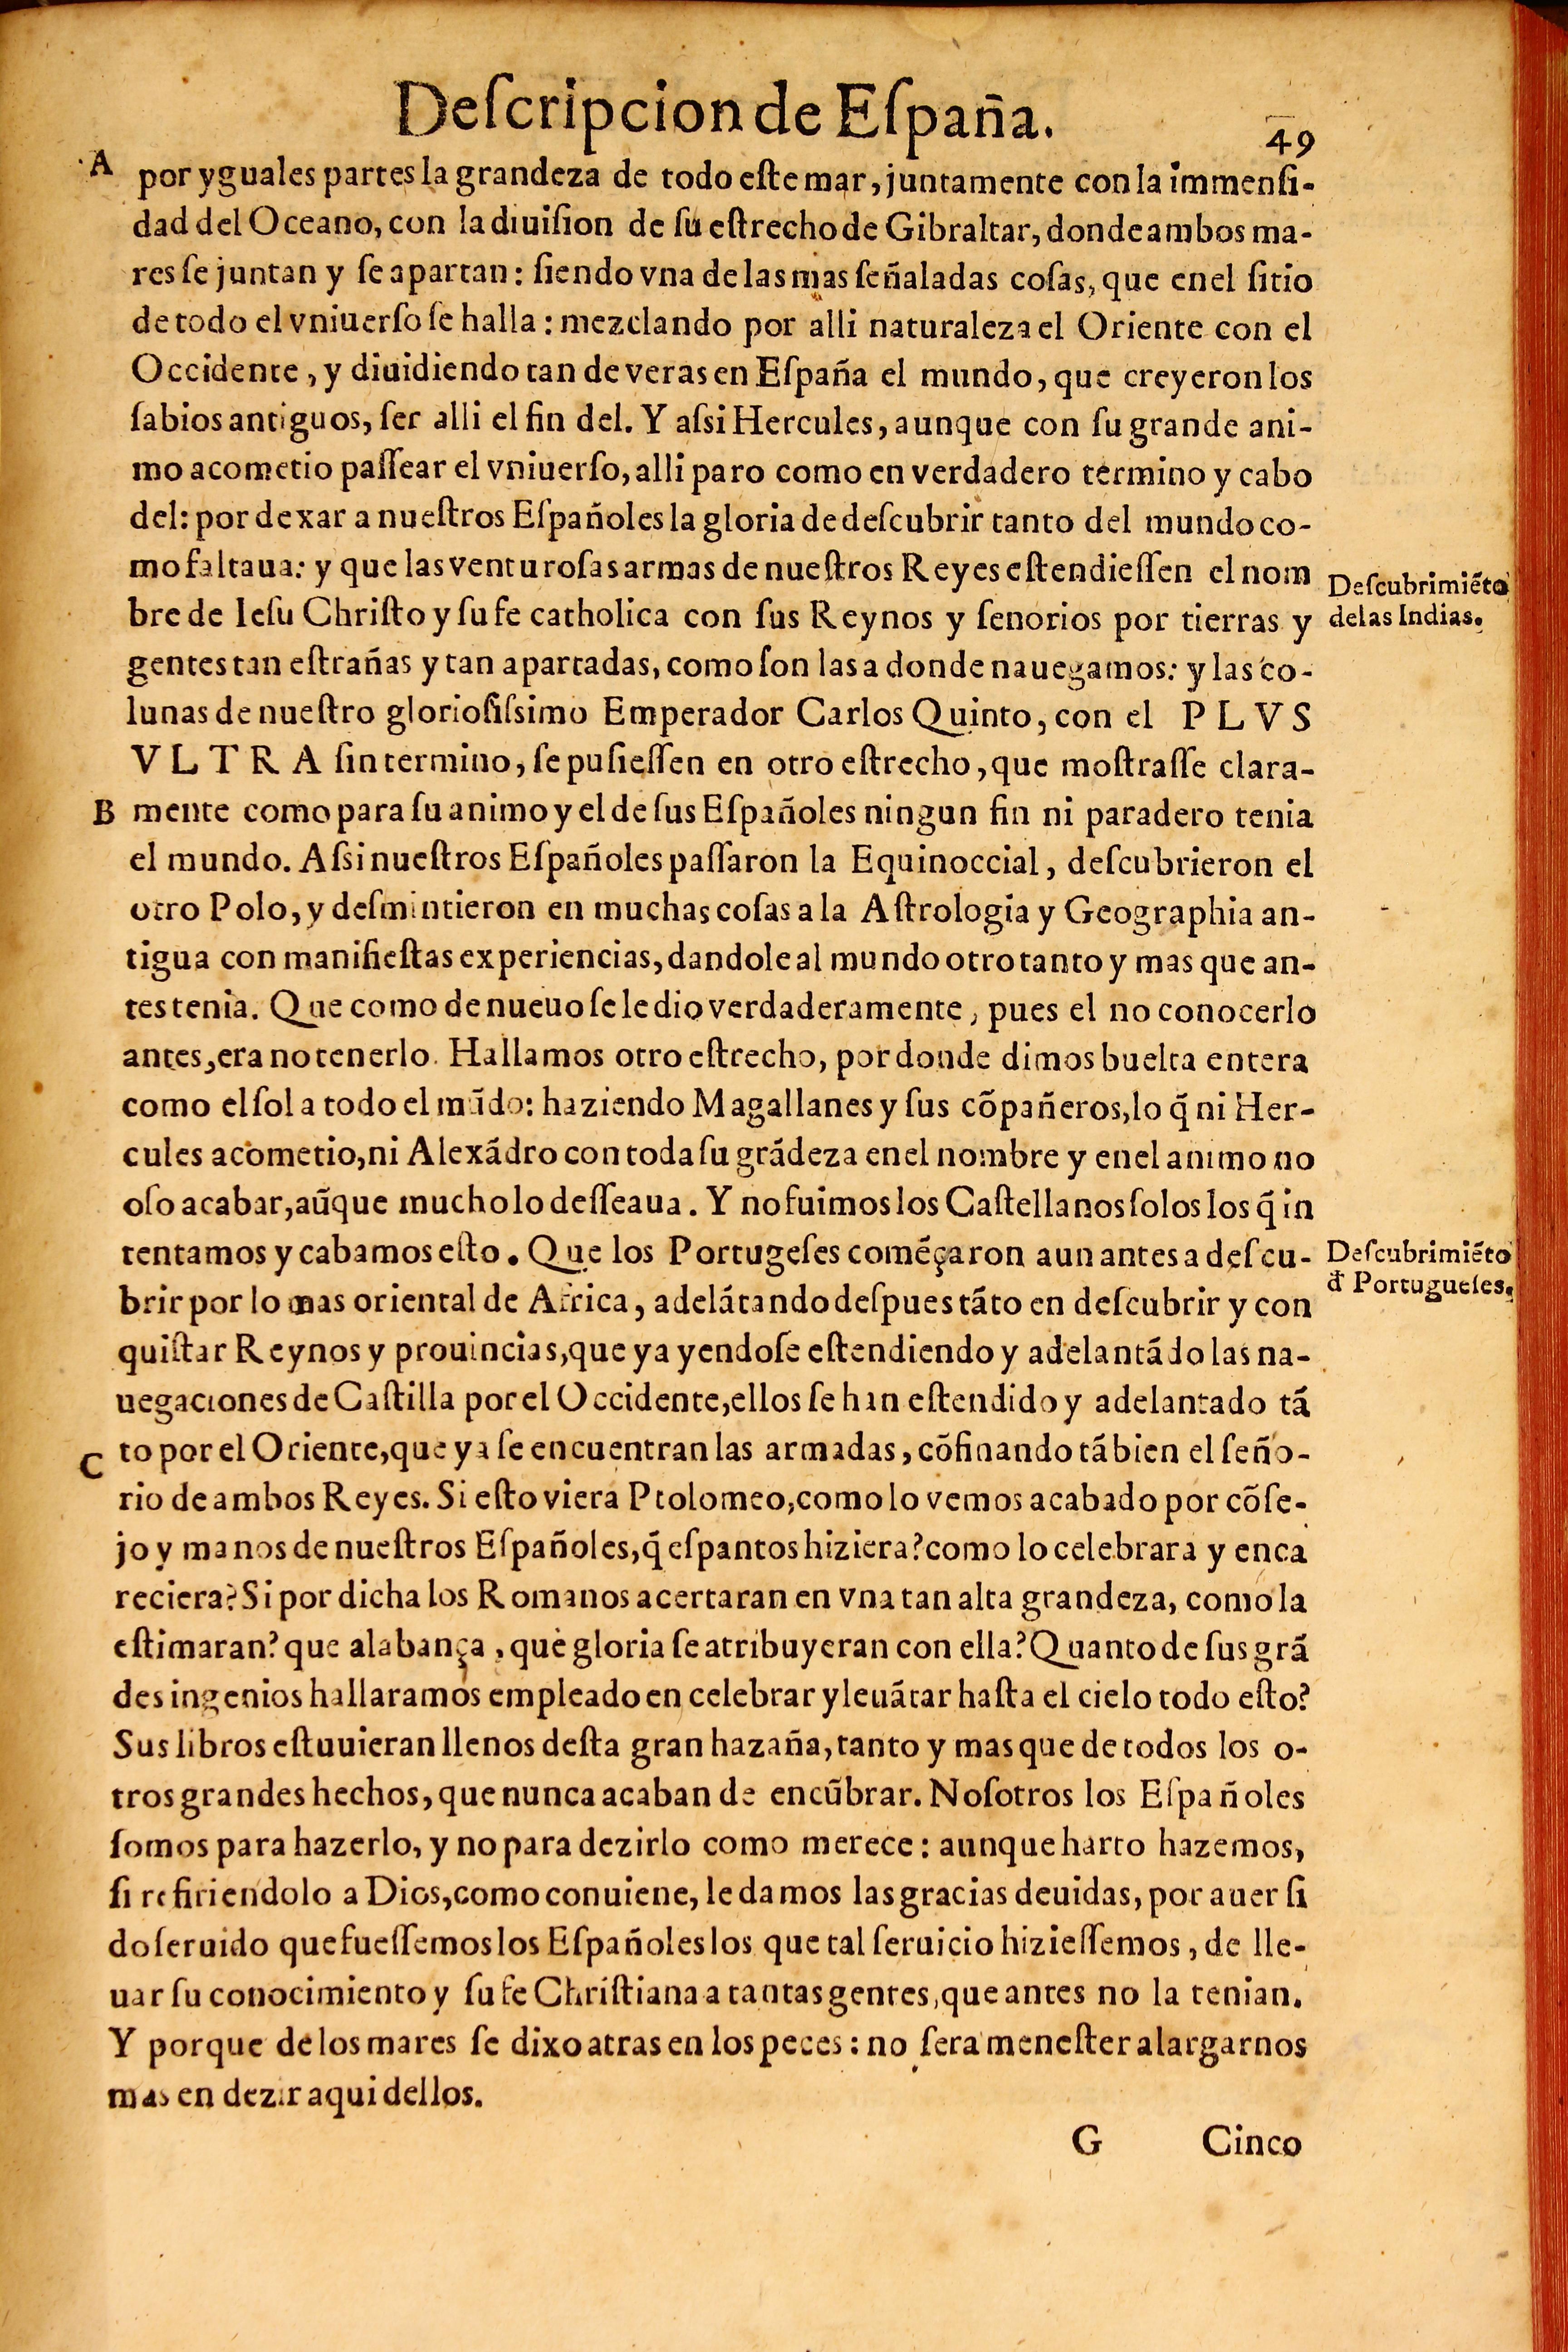 Deſcripcion de Eſpaña.
49
A
por yguales partes la grandeza de todo eſte mar, juntamente con la immenſi-
dad del Oceano, con la diuiſion de ſu eſtrecho de Gibraltar, donde ambos ma-
res ſe juntan y ſe apartan: ſiendo vna de las mas ſeñaladas coſas, que en el ſitio
de todo el vniuerſo ſe halla: mezclando por alli naturaleza el Oriente con el
Occidente, y diuidiendo tan de veras en Eſpaña el mundo, que creyeron los
ſabios antiguos, ſer alli el fin del. Y aſsi Hercules, aunque con ſu grande ani-
mo acometio paſſear el vniuerſo, alli paro como en verdadero termino y cabo
del: por dexar a nueſtros Eſpañoles la gloria de deſcubrir tanto del mundo co-
mo faltaua: y que las venturoſas armas de nueſtros Reyes eſtendieſſen el nom
bre de Ieſu Chriſto y ſu fe catholica con ſus Reynos y ſenorios por tierras y
gentes tan eſtrañas y tan apartadas, como ſon las a donde nauegamos: y las co-
lunas de nueſtro glorioſiſsimo Emperador Carlos Quinto, con el PLVS
VLTRA ſin termino, ſe puſieſſen en otro eſtrecho, que moſtraſſe clara-
Deſcubrimiẽto
de las Indias.
B
mente como para ſu animo y el de ſus Eſpañoles ningun fin ni paradero tenia
el mundo. Aſsi nueſtros Eſpañoles paſſaron la Equinoccial, deſcubrieron el
otro Polo, y deſmintieron en muchas coſas a la Aſtrologia y Geographia an-
tigua con manifieſtas experiencias, dandole al mundo otro tanto y mas que an-
tes tenia. Que como de nueuo ſe le dio verdaderamente, pues el no conocerlo
antes, era no tenerlo. Hallamos otro eſtrecho, por donde dimos buelta entera
como el ſol a todo el mũdo: haziendo Magallanes y ſus cõpañeros, lo q̃ ni Her-
cules acometio, ni Alexãdro con toda ſu grãdeza en el nombre y en el animo no
oſo acabar, aũque mucho lo deſſeaua. Y no fuimos los Caſtellanos ſolos los q̃ in
tentamos y cabamos eſto. Que los Portugeſes comẽçaron aun antes a deſcu-
brir por lo mas oriental de Africa, adelãtando deſpues tãto en deſcubrir y con
quiſtar Reynos y prouincias, que ya yendoſe eſtendiendo y adelantãdo las na-
uegaciones de Caſtilla por el Occidente, ellos ſe han eſtendido y adelantado tã
Deſcubrimiẽto
d̃ Portugueſes.
C
to por el Oriente, que ya ſe encuentran las armadas, cõfinando tãbien el ſeño-
rio de ambos Reyes. Si eſto viera Ptolomeo, como lo vemos acabado por cõſe-
jo y manos de nueſtros Eſpañoles, q̃ eſpantos hiziera? como lo celebrara y enca
reciera? Si por dicha los Romanos acertaran en vna tan alta grandeza, como la
eſtimaran? que alabança, que gloria ſe atribuyeran con ella? Quanto de ſus grã
des ingenios hallaramos empleado en celebrar y leuãtar haſta el cielo todo eſto?
Sus libros eſtuuieran llenos deſta gran hazaña, tanto y mas que de todos los o-
tros grandes hechos, que nunca acaban de encũbrar. Noſotros los Eſpañoles
ſomos para hazerlo, y no para dezirlo como merece: aunque harto hazemos,
ſi refiriendolo a Dios, como conuiene, le damos las gracias deuidas, por auer ſi
do ſeruido que fueſſemos los Eſpañoles los que tal ſeruicio hizieſſemos, de lle-
uar ſu conocimiento y ſu fe Chriſtiana a tantas gentes, que antes no la tenian.
Y porque de los mares ſe dixo atras en los peces: no ſera meneſter alargarnos
mas en dezir aqui dellos.
G Cinco